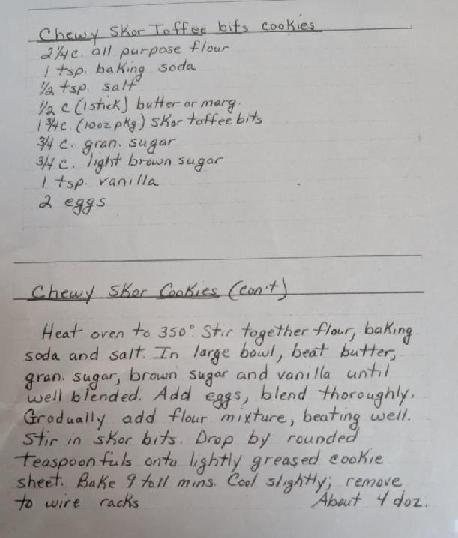 Chewy Skor Toffee bits cookies
2 1/4 c. all purpose flour
1 tsp. baking soda
1/2 tsp. salt
1/2 c (1 stick) butter or marg.
1 3/4 c. (10oz pkg) Skor toffee bits
3/4 c. gran. sugar
3/4 c. light brown sugar
1 tsp. vanilla
2 eggs
Chewy Skor Cookies (con't)
Heat oven to 350° Stir together flour, baking
soda and salt. In large bowl, beat butter,
gran. sugar, brown sugar and vanilla until
well blended. Add eggs, blend thoroughly.
Gradually add flour mixture, beating well.
Stir in skor bits. Drop by rounded
teaspoonfuls onto lightly greased cookie
sheet. Bake 9 to 11 mins. Cool slightly; remove
to wire racks About 4 doz.